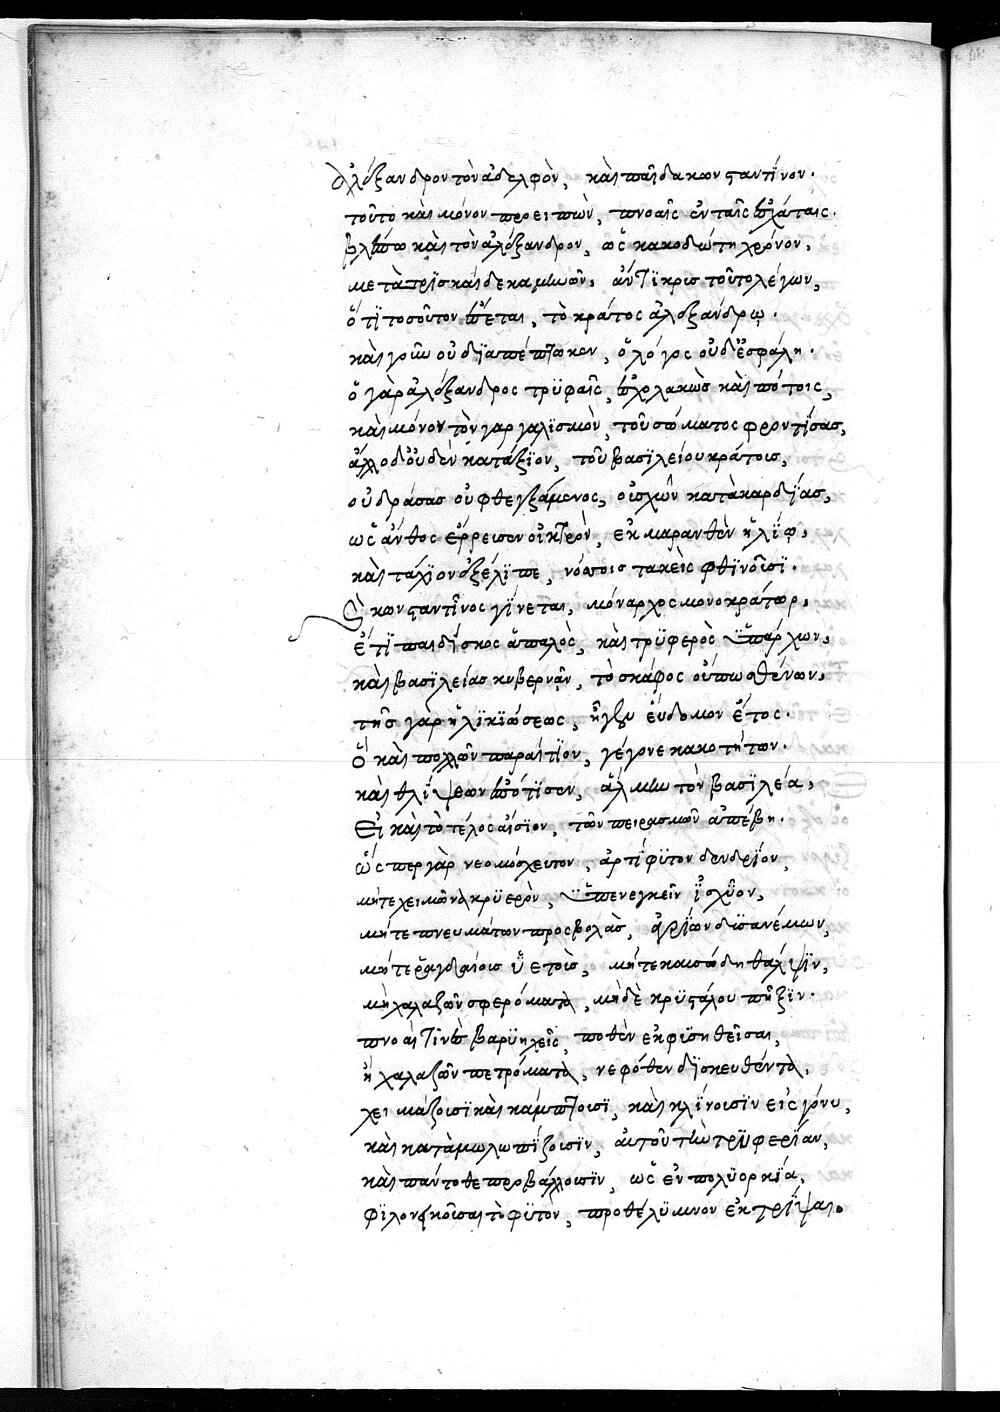 Ἀλέξανδρον τὸν ἀδελφὸν, καὶ παῖδα κωνσταντῖνον.
τοῦτο καὶ μόνον προειπὼν, πνοαῖς ἐν ταῖς ἐσχάταις.
βλέπω καὶ τὸν ἀλέξανδρον, ὡς κακοδώτη χρόνον,
μετὰ τρὶς καὶ δέκα μηνῶν, ἀντϊκρις τοῦτο λέγων,
ὅτϊ τοσοῦτον ἕπεται, τὸ κράτος ἀλεξάνδρῳ.
καὶ γοῦν οὐ δϊαπέπτωκεν, ὁ λόγος οὐδ' ἐσφάλη.
ὁ γὰρ ἀλέξανδρος τρϋφαῖς, ἐσχολακὼς καὶ πότοις,
καὶ μόνον τὸν γαργαλϊσμὸν, τοῦ σώματος φροντίσας,
ἄλλο δ' οὐδὲν κατάξϊον, τοῦ βασϊλείου κράτους,
οὐ δράσας οὐ φθεγξάμενος, οὐ σχὼν κατὰ καρδίας,
ὡς ἄνθος ἔρρευσεν οἰκτρὸν, ἐκμαρανθὲν ἡλίῳ,
καὶ τάχϊον ἐξέλϊπε, νόσοις τακεὶς φθϊνούσϊ.
Ὁ κωνσταντῖνος γίνεται, μόναρχος μονοκράτωρ,
ἔτϊ παιδίσκος ἁπαλὸς, καὶ τρϋφερὸς ὑπάρχων,
καὶ βασϊλείας κυβερνᾶν, τὸ σκάφος οὔπω σθένων.
τῆς γὰρ ἡλϊκϊώσεως, ἦγεν ἕβδομον ἔτος.
Ὃ καὶ πολλῶν παραίτϊον, γέγονε κακοτήτων.
καὶ θλίψεων ἐπότϊσεν, ἅλμην τὸν βασιλέα,
Εἰ καὶ τὸ τέλος αἴσϊον, τῶν πειρασμῶν ἀπέβη.
ὥσπερ γὰρ νεομόσχευτον, ἀρτίφϋτον δενδρίον,
μήτε χειμῶνα κρϋερὸν, ὑπενεγκεῖν ἰσχῦον,
μήτε πνευμάτων προσβολὰς, ἀγρίων δϋσανέμων,
μήτε ῥαγδαίους ὑετοὺς, μήτε καυσώδη θάλψϊν,
μὴ χαλαζῶν σφερόματα, μηδὲ κρϋστάλου πῆξϊν.
πνοαί τϊνες βαρϋηχεῖς, ποθὲν ἐκφϋσηθεῖσαι,
ἢ χαλαζῶν πετρώματα, νεφόθεν δϊσκευθέντα,
χειμάζουσϊ καὶ κάμπτουσϊ, καὶ κλίνουσϊν εἰς γόνυ,
καὶ καταμωλωπίζουσϊν, αὐτοῦ τὴν τρϋφερίαν,
καὶ πάντοθε προβάλλουσϊν, ὡς ἐν πολϋορκία,
φϊλονεικοῦσαι τὸ φϋτὸν, προθέλϋμνον ἐκτρίψαι.